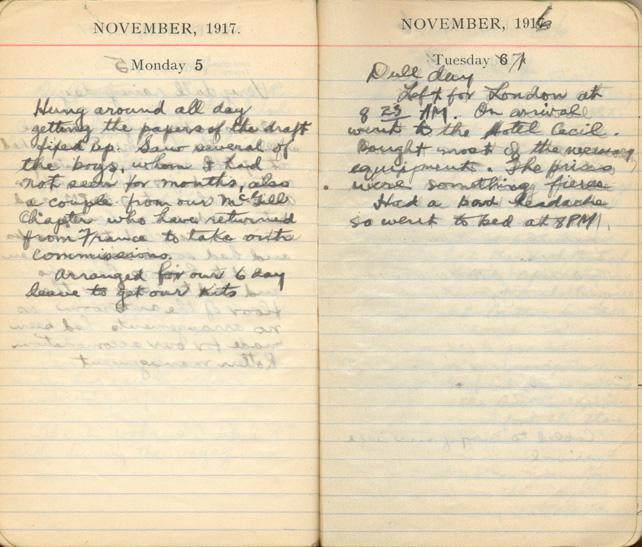 NOVEMBER, 1917.
Monday 5
Hung around all day
getting the papers of the draft
fixed up. Saw several of
the boys, whom I had
not seen for months, also
a couple from our McGill
Chapter who have returned
from France to take out
commissions.
Arranged for our 6 day
leave to get our kits
NOVEMBER, 1916
Tuesday 6
Dull day
Left for London at
8 23 AM. On arrival
went to the Hotel Cecil.
Bought most of the necessary
equipment. The prices
were something fierce
Had a bad headache
so went to bed at 8 PM.